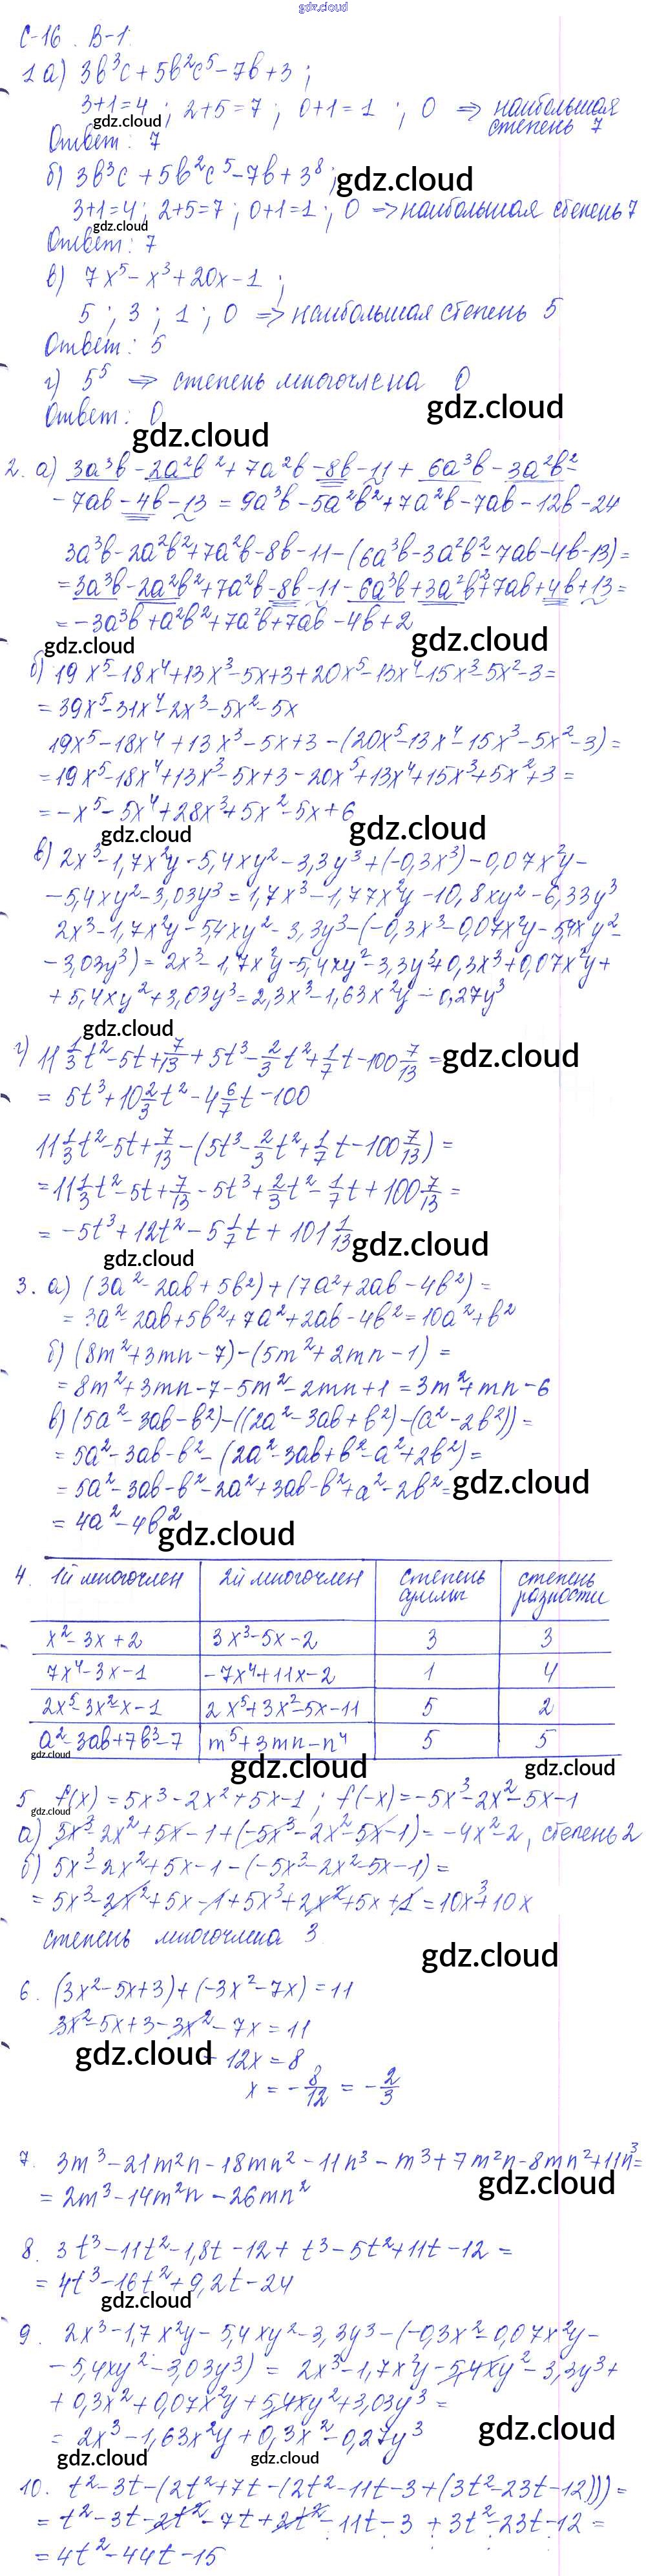 gdz.cloud
С-16. В-1.
1 а) 3b³c + 5b²c⁵ - 7b + 3 ;
3+1=4 ; 2+5=7 ; 0+1=1 ; 0 => наибольшая
степень 7
gdz.cloud
Ответ: 7
б) 3b³c + 5b²c⁵ - 7b + 3⁸ ;
gdz.cloud
3+1=4; 2+5=7; 0+1=1; 0 => наибольшая степень 7
gdz.cloud
Ответ: 7
в) 7x⁵ - x³ + 20x - 1 ;
5 ; 3 ; 1 ; 0 => наибольшая степень 5
Ответ: 5
г) 5⁵ => степень многочлена 0
gdz.cloud
Ответ: 0
gdz.cloud
2. а) 3a³b - 2a²b² + 7a²b - 8b - 11 + 6a³b - 3a²b² -
- 7ab - 4b - 13 = 9a³b - 5a²b² + 7a²b - 7ab - 12b - 24
3a³b - 2a²b² + 7a²b - 8b - 11 - (6a³b - 3a²b² - 7ab - 4b - 13) =
= 3a³b - 2a²b² + 7a²b - 8b - 11 - 6a³b + 3a²b² + 7ab + 4b + 13 =
= -3a³b + a²b² + 7a²b + 7ab - 4b + 2
gdz.cloud gdz.cloud
б) 19x⁵ - 18x⁴ + 13x³ - 5x + 3 + 20x⁵ - 13x⁴ - 15x³ - 5x² - 3 =
= 39x⁵ - 31x⁴ - 2x³ - 5x² - 5x
19x⁵ - 18x⁴ + 13x³ - 5x + 3 - (20x⁵ - 13x⁴ - 15x³ - 5x² - 3) =
= 19x⁵ - 18x⁴ + 13x³ - 5x + 3 - 20x⁵ + 13x⁴ + 15x³ + 5x² + 3 =
= -x⁵ - 5x⁴ + 28x³ + 5x² - 5x + 6
gdz.cloud gdz.cloud
в) 2x³ - 1,7x²y - 5,4xy² - 3,3y³ + (-0,3x³) - 0,07x²y -
- 5,4xy² - 3,03y³ = 1,7x³ - 1,77x²y - 10,8xy² - 6,33y³
2x³ - 1,7x²y - 5,4xy² - 3,3y³ - (-0,3x³ - 0,07x²y - 5,4xy² -
- 3,03y³) = 2x³ - 1,7x²y - 5,4xy² - 3,3y³ + 0,3x³ + 0,07x²y +
+ 5,4xy² + 3,03y³ = 2,3x³ - 1,63x²y - 0,27y³
gdz.cloud
г) 11 1/3 t² - 5t + 7/13 + 5t³ - 2/3 t² + 1/7 t - 100 7/13 =
gdz.cloud
= 5t³ + 10 2/3 t² - 4 6/7 t - 100
11 1/3 t² - 5t + 7/13 - (5t³ - 2/3 t² + 1/7 t - 100 7/13) =
= 11 1/3 t² - 5t + 7/13 - 5t³ + 2/3 t² - 1/7 t + 100 7/13 =
= -5t³ + 12t² - 5 1/7 t + 101 1/13
gdz.cloud
gdz.cloud
3. а) (3a² - 2ab + 5b²) + (7a² + 2ab - 4b²) =
= 3a² - 2ab + 5b² + 7a² + 2ab - 4b² = 10a² + b²
б) (8m² + 3mn - 7) - (5m² + 2mn - 1) =
= 8m² + 3mn - 7 - 5m² - 2mn + 1 = 3m² + mn - 6
в) (5a² - 3ab - b²) - ((2a² - 3ab + b²) - (a² - 2b²)) =
= 5a² - 3ab - b² - (2a² - 3ab + b² - a² + 2b²) =
= 5a² - 3ab - b² - 2a² + 3ab - b² + a² - 2b² =
gdz.cloud
= 4a² - 4b²
gdz.cloud
4. 1й многочлен 2й многочлен степень суммы степень разности
x² - 3x + 2 3x³ - 5x - 2 3 3
7x⁴ - 3x - 1 -7x⁴ + 11x - 2 1 4
2x⁵ - 3x² - x - 1 2x⁵ + 3x² - 5x - 11 5 2
a² - 3ab + 7b³ - 7 m⁵ + 3mn - n⁴ 5 5
gdz.cloud gdz.cloud gdz.cloud
5. f(x) = 5x³ - 2x² + 5x - 1 ; f(-x) = -5x³ - 2x² - 5x - 1
gdz.cloud
а) 5x³ - 2x² + 5x - 1 + (-5x³ - 2x² - 5x - 1) = -4x² - 2, степень 2
б) 5x³ - 2x² + 5x - 1 - (-5x³ - 2x² - 5x - 1) =
= 5x³ - 2x² + 5x - 1 + 5x³ + 2x² + 5x + 1 = 10x³ + 10x
степень многочлена 3
gdz.cloud
6. (3x² - 5x + 3) + (-3x² - 7x) = 11
3x² - 5x + 3 - 3x² - 7x = 11
gdz.cloud
- 12x = 8
x = - 8/12 = - 2/3
7. 3m³ - 21m²n - 18mn² - 11n³ - m³ + 7m²n - 8mn² + 11n³ =
gdz.cloud
= 2m³ - 14m²n - 26mn²
8. 3t³ - 11t² - 1,8t - 12 + t³ - 5t² + 11t - 12 =
= 4t³ - 16t² + 9,2t - 24
gdz.cloud
9. 2x³ - 1,7x²y - 5,4xy² - 3,3y³ - (-0,3x² - 0,07x²y -
- 5,4xy² - 3,03y³) = 2x³ - 1,7x²y - 5,4xy² - 3,3y³ +
+ 0,3x² + 0,07x²y + 5,4xy² + 3,03y³ =
gdz.cloud
= 2x³ - 1,63x²y + 0,3x² - 0,27y³
gdz.cloud gdz.cloud
10. t² - 3t - (2t² + 7t - (2t² - 11t - 3 + (3t² - 23t - 12))) =
= t² - 3t - 2t² - 7t + 2t² - 11t - 3 + 3t² - 23t - 12 =
= 4t² - 44t - 15